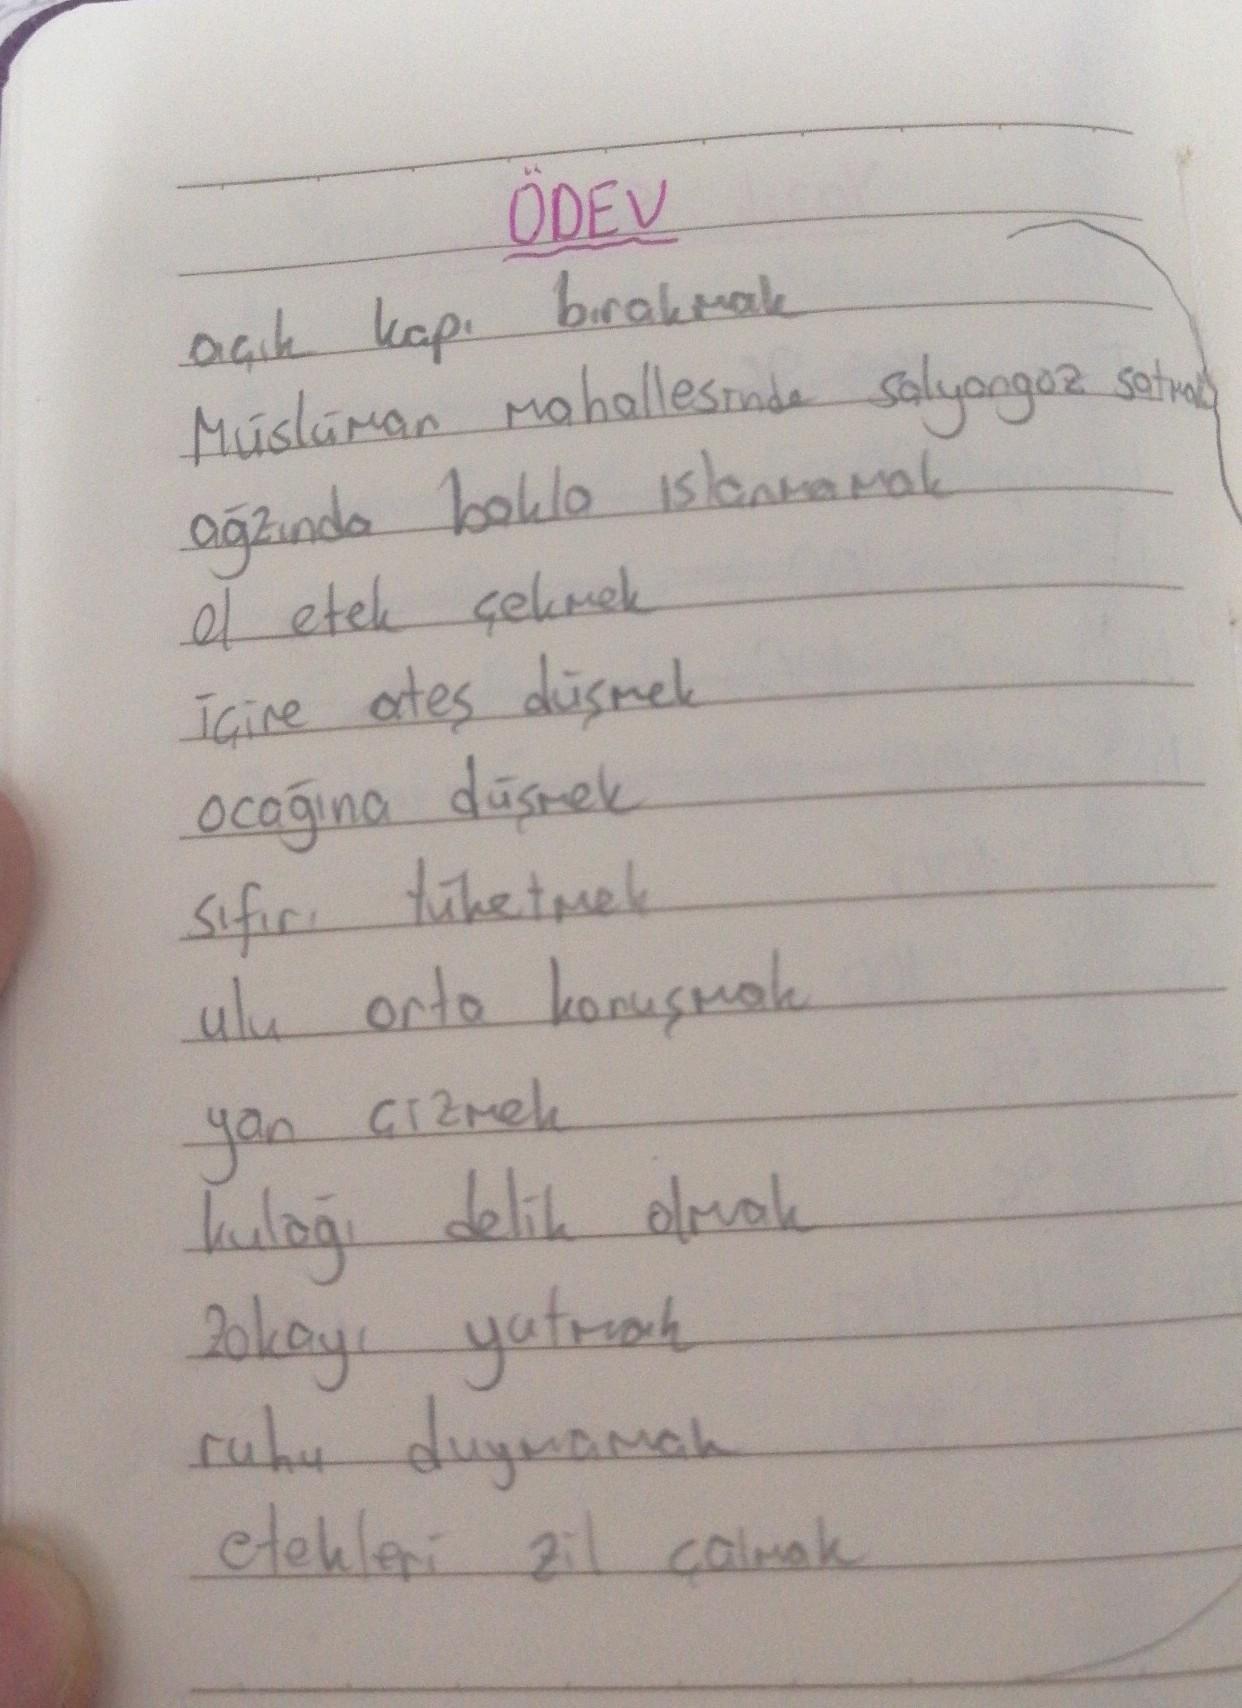 ÖDEV
açık kapı bırakmak
Müslüman mahallesinde salyangoz satmak
ağzında bakla ıslanmamak
el etek çekmek
içine ateş düşmek
ocağına düşmek
sıfırı tüketmek
ulu orta konuşmak
yan çizmek
kulağı delik olmak
zokayı yutmak
ruhu duymamak
etekleri zil çalmak